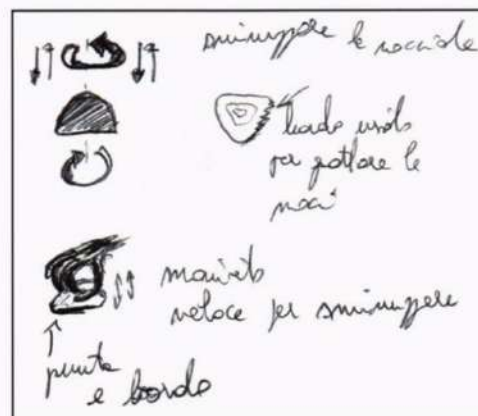 sminuzzare le nocciole
bordo usato
per grattare le
noci
movimento
veloce per sminuzzare
punta
e bordo